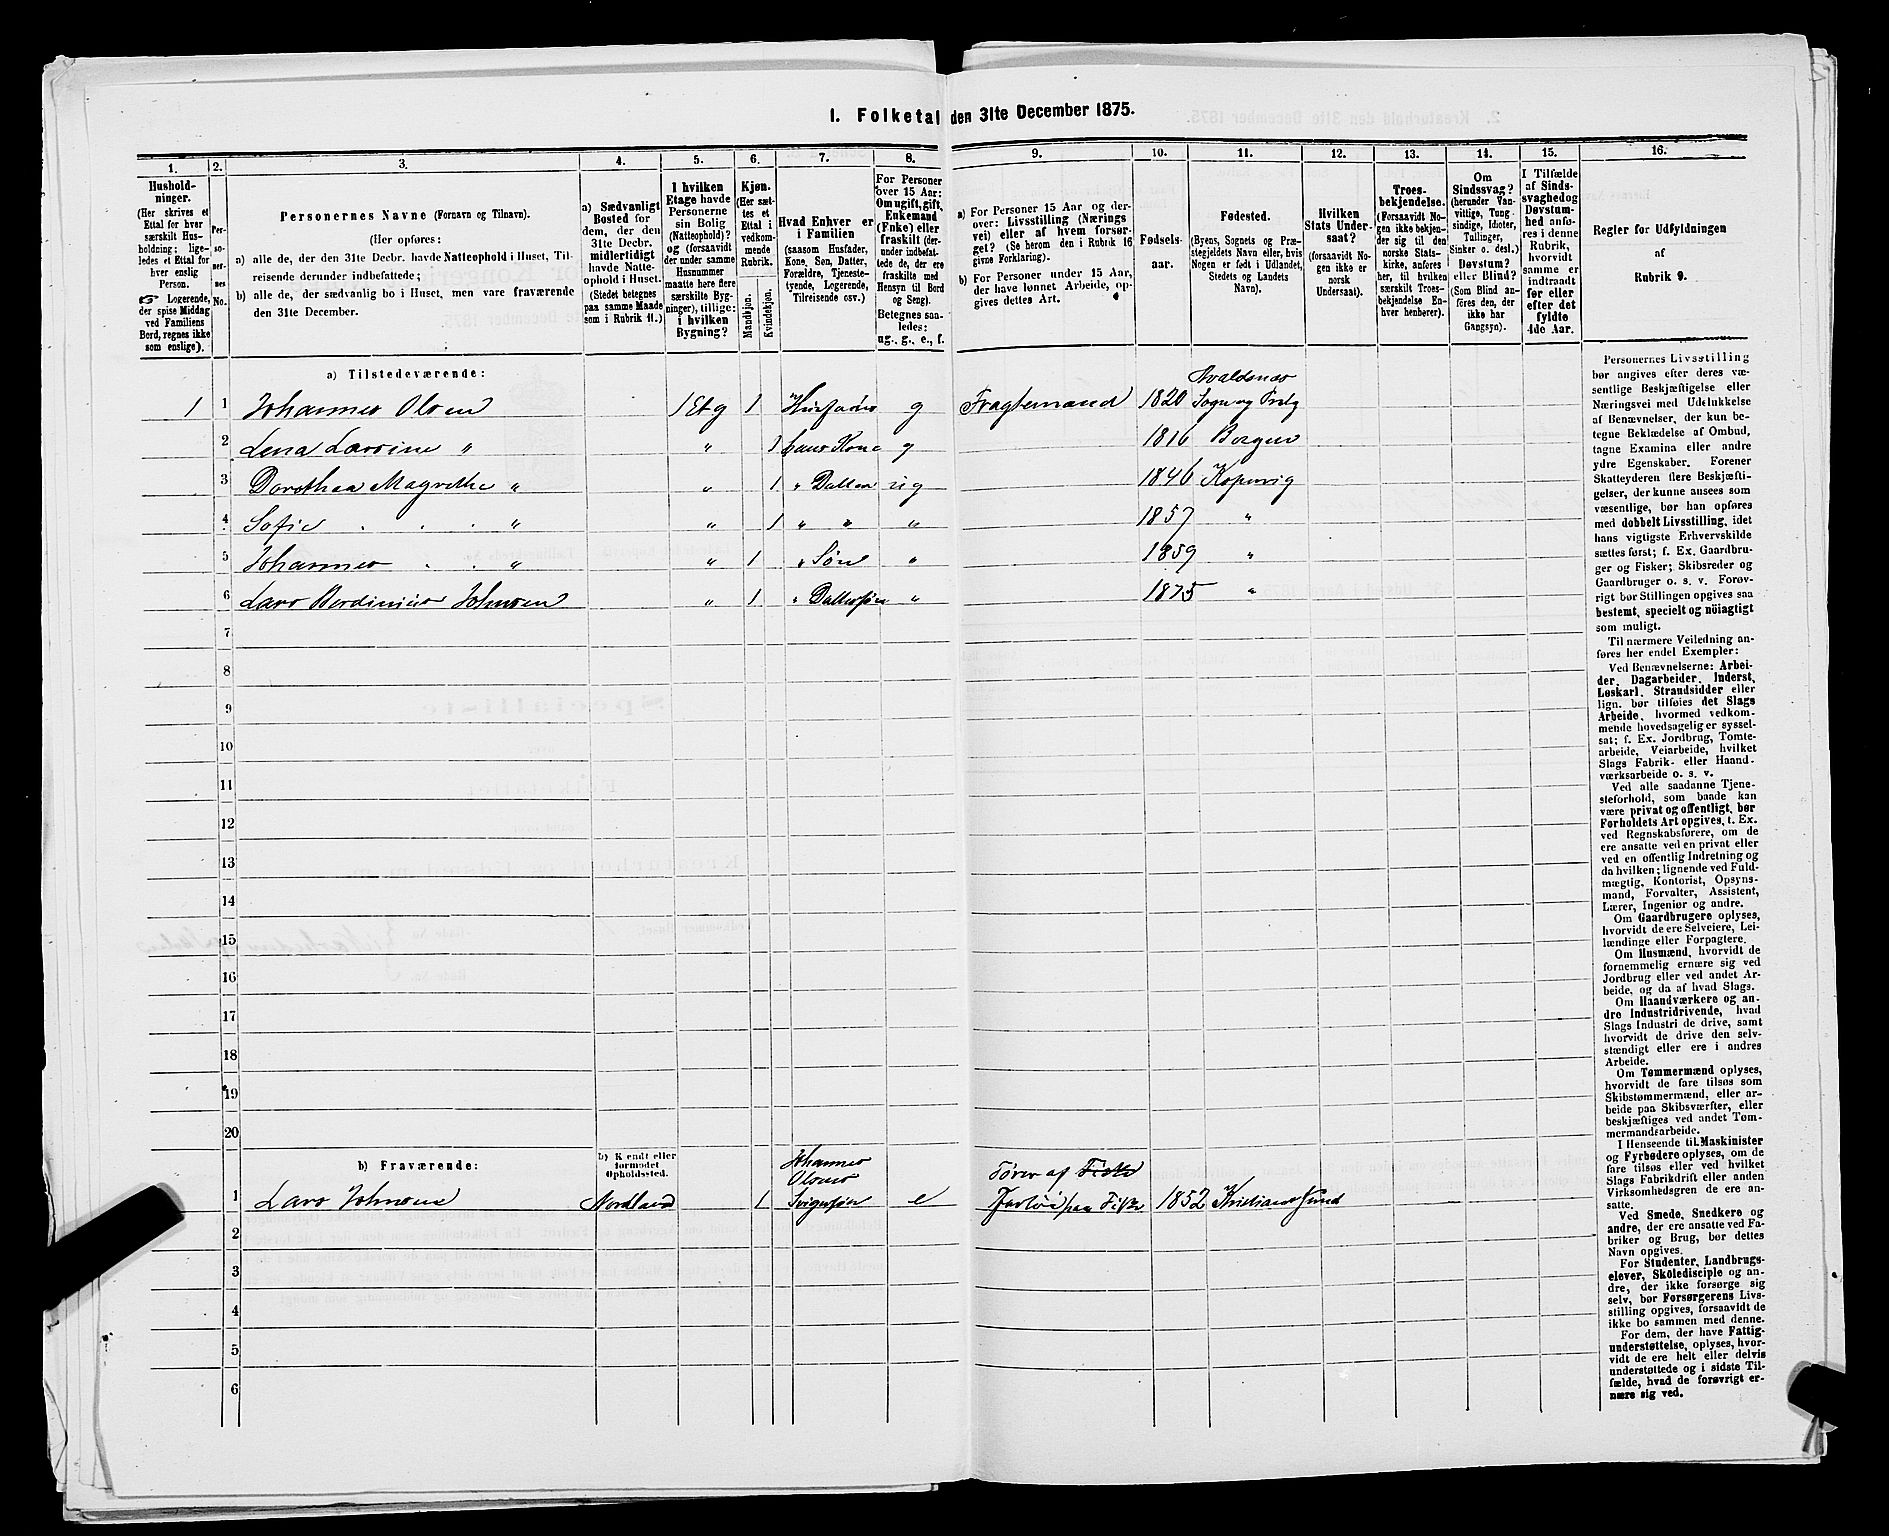 1. Folketal den 31te December 1875.
1. 2. 3. 4. 5. 6. 7. 8. 9. 10. 11. 12. 13. 14. 15. 16.
Hushold-
ninger.
(Her skrives et
Ettal for hver
særskilt Hus-
holdning; lige-
ledes et Ettal for
hver enslig
Person.
☞ Logerende,
der spise Middag
ved Familiens
Bord, regnes ikke
som enslige).
Per-
so-
ner-
nes
No.
Personernes Navne (Fornavn og Tilnavn).
(Her opføres:
a) alle de, der den 31te Decbr. havde Natteophold i Huset, Til-
reisende derunder indbefattede;
b) alle de, der sædvanlig bo i Huset, men vare fraværende
den 31te December.
a) Sædvanligt
Bosted for
dem, der den
31te Decbr.
midlertidigt
havde Natte-
ophold i Huset.
(Stedet betegnes
paa samme Maade
som i Rubrik 11.)
I hvilken
Etage havde
Personerne
sin Bolig
(Natteophold)?
og (forsaavidt
der under
samme
Husnummer
maatte høre flere
særskilte Byg-
ninger), tillige:
i hvilken
Bygning?
Kjøn.
(Her sæt-
tes et
Ettal i
vedkom-
mende
Rubrik.
Mandkjøn.
Kvindekjøn.
Hvad Enhver er
i Familien
(saasom Husfader,
Kone, Søn, Datter,
Forældre, Tjeneste-
tyende, Logerende,
Tilreisende osv.)
For Personer
over 15 Aar:
Om ugift, gift,
Enkemand
(Enke) eller
fraskilt (der-
under indbefat-
tede de, der ere
fraskilte med
Hensyn til Bord
og Seng).
Betegnes saa-
ledes:
ug., g., e., f.
a) For Personer 15 Aar og der-
over: Livsstilling (Nærings
vei) eller af hvem forsør-
get? (Se herom den i Rubrik 16
givne Forklaring).
b) For Personer under 15 Aar,
der have lønnet Arbeide, op-
gives dettes Art.
Fødsels-
aar.
Fødested.
(Byens, Sognets og Præ-
stegjeldets Navn eller, hvis
Nogen er født i Udlandet,
Stedets og Landets
Navn).
Hvilken
Stats Under-
saat?
(forsaavidt No-
gen ikke er
norsk
Undersaat).
Troes-
bekjendelse.
(Forsaavidt No-
gen ikke bekjen-
der sig til den
norske Stats-
kirke, anføres
her, til hvilken
særskilt Troes-
bekjendelse En-
hver henhører).
Om
Sindssvag?
(herunder Van-
vittige, Tung-
sindige, Idioter,
Tullinger,
Sinker o. desl.)
Døvstum?
eller Blind?
(Som Blind an-
føres den, der
ikke har
Gangsyn).
I Tilfælde
af Sinds-
svaghed og
Døvstum-
hed anfø-
res i denne
Rubrik,
hvorvidt
samme er
indtraadt
før eller
efter det
fyldte
4de Aar.
Regler for Udfyldningen
af
Rubrik 9.
a) Tilstedeværende:
1 1 Johannes Olsen 1 Etg 1 Husfader g Fragtemand 1820 Avaldsnæs Sogn og Prstg
2 Lena Lavrine " " 1 hans Kone g 1816 Bergen
3 Dorothea Magrethe " " 1 " Datter ug 1846 Kopervig
4 Sofie . . . " " 1 " " " 1857 "
5 Johannes . . " " 1 " Søn " 1859 "
6 Lars Berdinius Johnsen " 1 " Dattersøn " 1875 "
7
8
9
10
11
12
13
14
15
16
17
18
19
20
b) Fraværende:
b) Kendt eller
formodet
Opholdssted.
1 Lars Johnsen Nordland 1 Johannes Olsens Svigersøn e Fører af Fiske Fartøi paa Fiske 1852 Kristiansund
2
3
4
5
6
Personernes Livsstilling
bør angives efter deres væ-
sentlige Beskjæftigelse eller
Næringsvei med Udelukkelse
af Benævnelser, der kun be-
tegne Bekladelse af Ombud,
tagne Examina eller andre
ydre Egenskaber. Forener
Skatteyderen flere Beskjæfti-
gelser, der kunne ansees som
væsentlige, bør han opføres
med dobbelt Livsstilling, idet
hans vigtigste Erhvervskilde
sættes først; f. Ex. Gaardbru-
ger og Fisker; Skibsreder og
Gaardbruger o. s. v. Forøv-
rigt bør Stillingen opgives saa
bestemt, specielt og nøiagtigt
som muligt.
Til nærmere Veiledning an-
føres her endel Exempler:
Ved Benævnelserne: Arbei-
der, Dagarbeider, Inderst,
Løskarl, Strandsidder eller
lign. bør tilføies det Slags
Arbeide, hvormed vedkom-
mende hovedsagelig er syssel-
sat; f. Ex. Jordbrug, Tomte-
arbeide, Veiarbeide, hvilket
Slags Fabrik- eller Haand-
værksarbeide o. s. v.
Ved alle saadanne Tjene-
steforhold, som baade kan
være privat og offentligt, bør
Forholdets Art opgives, t. Ex.
ved Regnskabsførere, om de
ere ansatte ved en privat eller
ved en offentlig Indretning og
da hvilken; lignende ved Fuld-
mægtig, Kontorist, Opsyns-
mand, Forvalter, Assistent,
Lærer, Ingeniør og andre.
Om Gaardbrugere oplyses,
hvorvidt de ere Selveiere, Lei-
lændinge eller Forpagtere.
Om Husmænd, hvorvidt de
fornemmelig ernære sig ved
Jordbrug eller ved andet Ar-
beide, og da af hvad Slags.
Om Haandværkere og an-
dre Industridrivende, hvad
Slags Industri de drive, samt
hvorvidt de drive den selv-
stændigt eller ere i andres
Arbeide.
Om Tømmermænd oplyses,
hvorvidt de fare tilsøs som
Skibstømmermænd, eller ar-
beide paa Skibsværfter, eller
beskjæftiges ved andet Tøm-
mermandsarbeide.
I Henseende til Maskinister
og Fyrbødere oplyses, om de
fare tilsøs eller ved hvilket
Slags Fabrikdrift eller anden
Virksomhedsgren de ere an-
satte.
Ved Smede, Snedkere og
andre, der ere ansatte ved Fa-
briker og Brug, bør dettes
Navn opgives.
For Studenter, Landbrugs-
elever, Skoledisciple og an-
dre, der ikke forsørge sig
selv, bør Forsørgerens Livs-
stilling opgives, forsaavidt de
ikke bo sammen med denne.
For dem, der have Fattig-
understøttelse, oplyses, hvor-
vidt de ere helt eller delvis
understøttede og i sidste Til-
fælde, hvad de forøvrigt er-
nære sig ved.